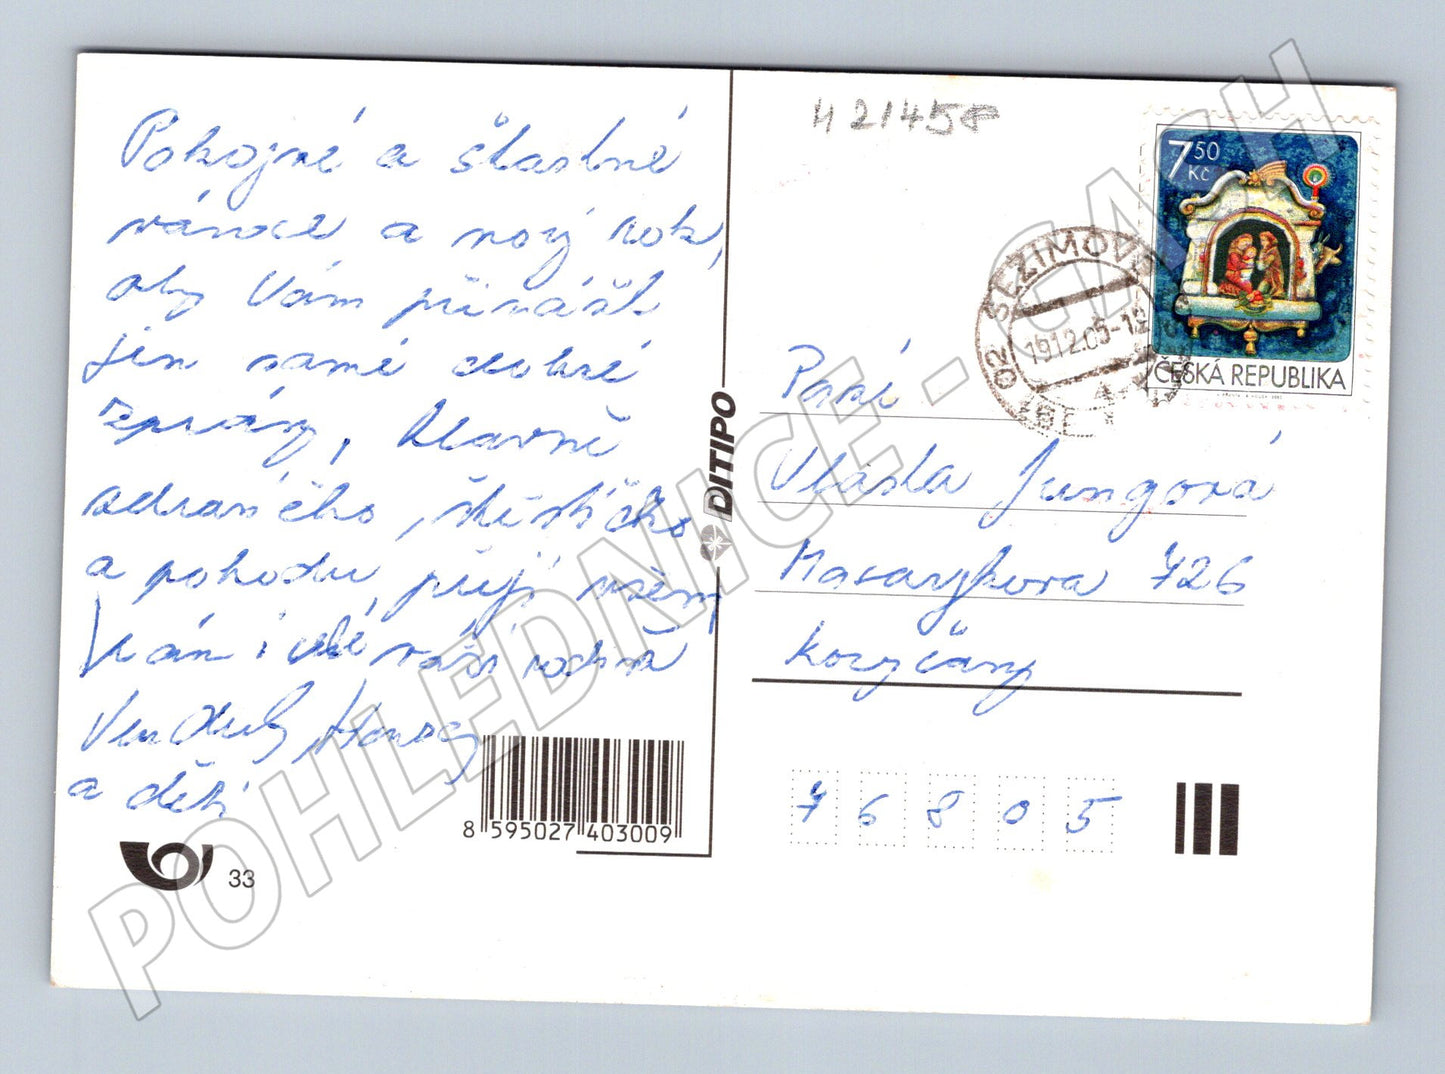 Pokojné a šťastné
vánoce a nový rok,
aby Vám přinášel
jen samé dobré
zprávy, hlavně
zdravíčko, štěstíčko
a pohodu, přejí všem
Vám i celé vaší rodině
Vendula, Honza
a děti
33
8 595027 403009
DITIPO
421458
7 50
Kč
ČESKÁ REPUBLIKA
02 SEZIMOVO
19.12.05-12
Paní
Vlasta Jungová
Masarykova 726
Koryčany
76805
POHLEDNICE - GACH